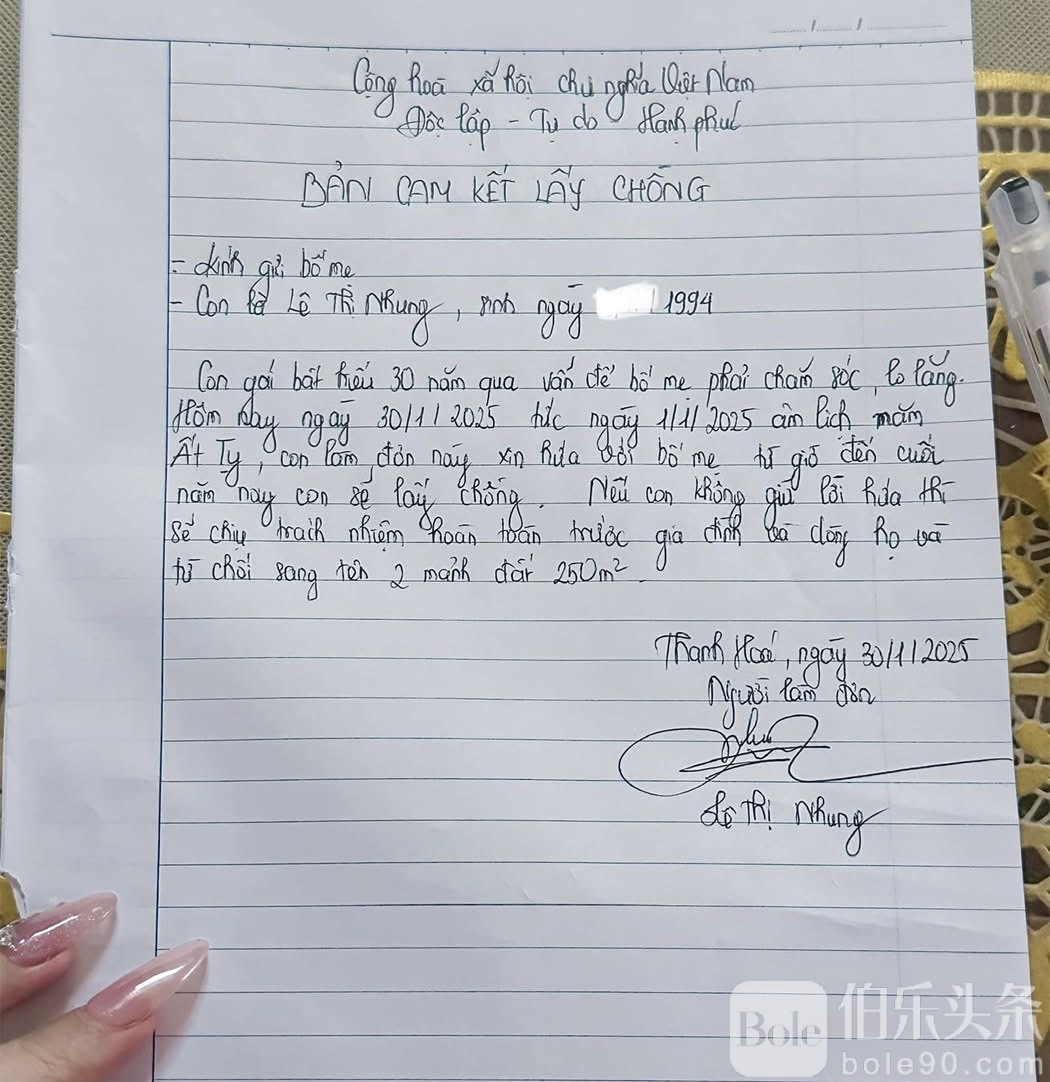 Cộng hoà xã hội chủ nghĩa Việt Nam
Độc lập - Tự do Hạnh phúc
BẢN CAM KẾT LẤY CHỒNG
- Kính gửi bố mẹ
- Con là Lê Thị Nhung, sinh ngày 1994
Con gái bất hiếu 30 năm qua vẫn để bố mẹ phải chăm sóc, lo lắng.
Hôm nay ngày 30/1/2025 tức ngày 1/1/2025 âm lịch năm
Ất Tỵ, con làm đơn này xin hứa với bố mẹ từ giờ đến cuối
năm nay con sẽ lấy chồng. Nếu con không giữ lời hứa thì
sẽ chịu trách nhiệm hoàn toàn trước gia đình và dòng họ và
từ chối sang tên 2 mảnh đất 250m²
Thanh Hoá, ngày 30/1/2025
Người làm đơn
Lê Thị Nhung
Bole 伯乐头条
bole90.com